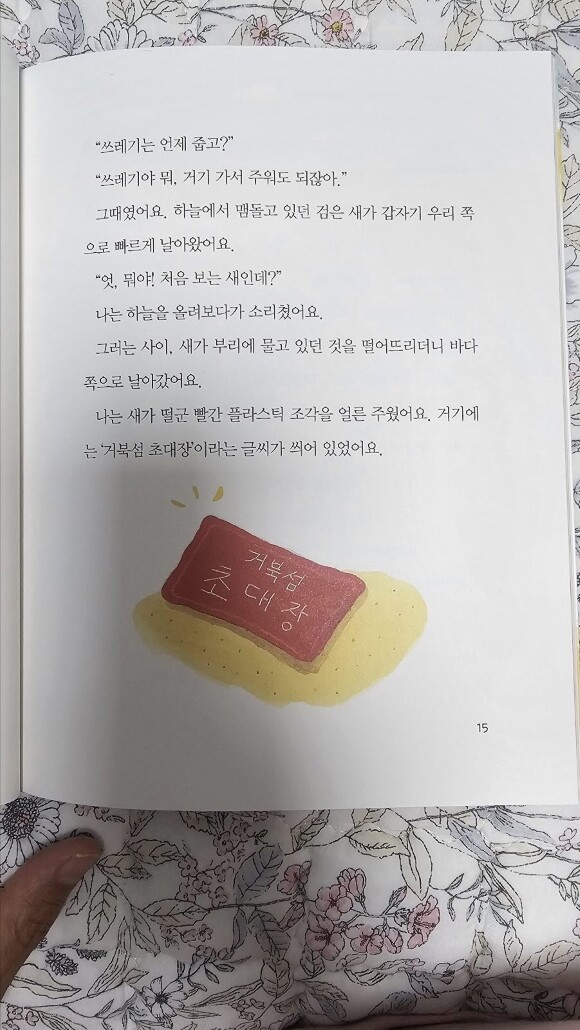 “쓰레기는 언제 줍고?”
“쓰레기야 뭐, 거기 가서 주워도 되잖아.”
그때였어요. 하늘에서 맴돌고 있던 검은 새가 갑자기 우리 쪽
으로 빠르게 날아왔어요.
“엇, 뭐야! 처음 보는 새인데?”
나는 하늘을 올려보다가 소리쳤어요.
그러는 사이, 새가 부리에 물고 있던 것을 떨어뜨리더니 바다
쪽으로 날아갔어요.
나는 새가 떨군 빨간 플라스틱 조각을 얼른 주웠어요. 거기에
는 ‘거북섬 초대장’이라는 글씨가 씌어 있었어요.
거북섬
초대장
15